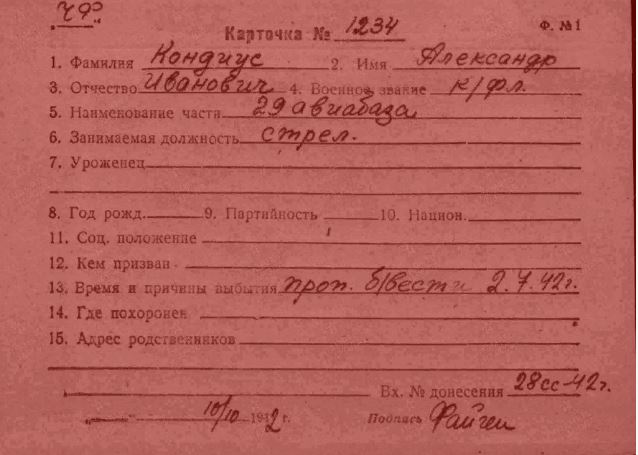 ЧФ
Карточка № 1234 Ф. №1
1. Фамилия Кондиус 2. Имя Александр
3. Отчество Иванович 4. Военное звание к/фл.
5. Наименование части 29 авиабаза
6. Занимаемая должность стрел.
7. Уроженец
8. Год рожд. 9. Партийность 10. Национ.
11. Соц. положение
12. Кем призван
13. Время и причины выбытия проп. б/вести 2.7.42г.
14. Где похоронен
15. Адрес родственников
Вх. № донесения 28сс-42г.
10/10 1942 г. Подпись